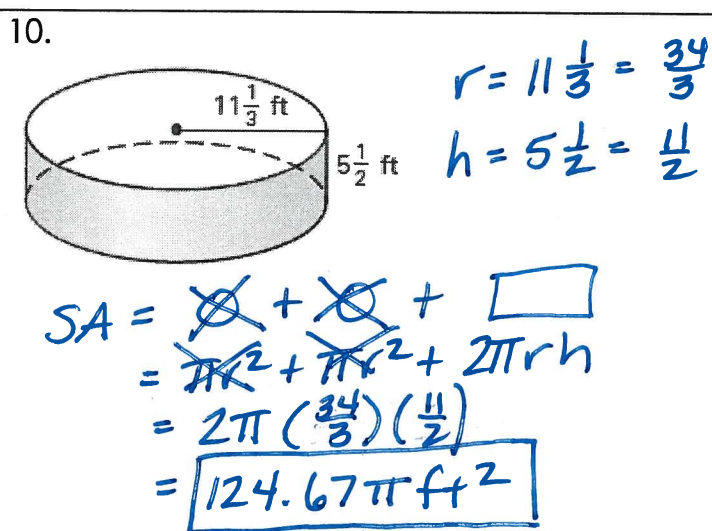 10.
11 1/3 ft
5 1/2 ft
r = 11 1/3 = 34/3
h = 5 1/2 = 11/2
SA = ○ + ○ + □
= πr² + πr² + 2πrh
= 2π (34/3)(11/2)
= 124.67π ft²